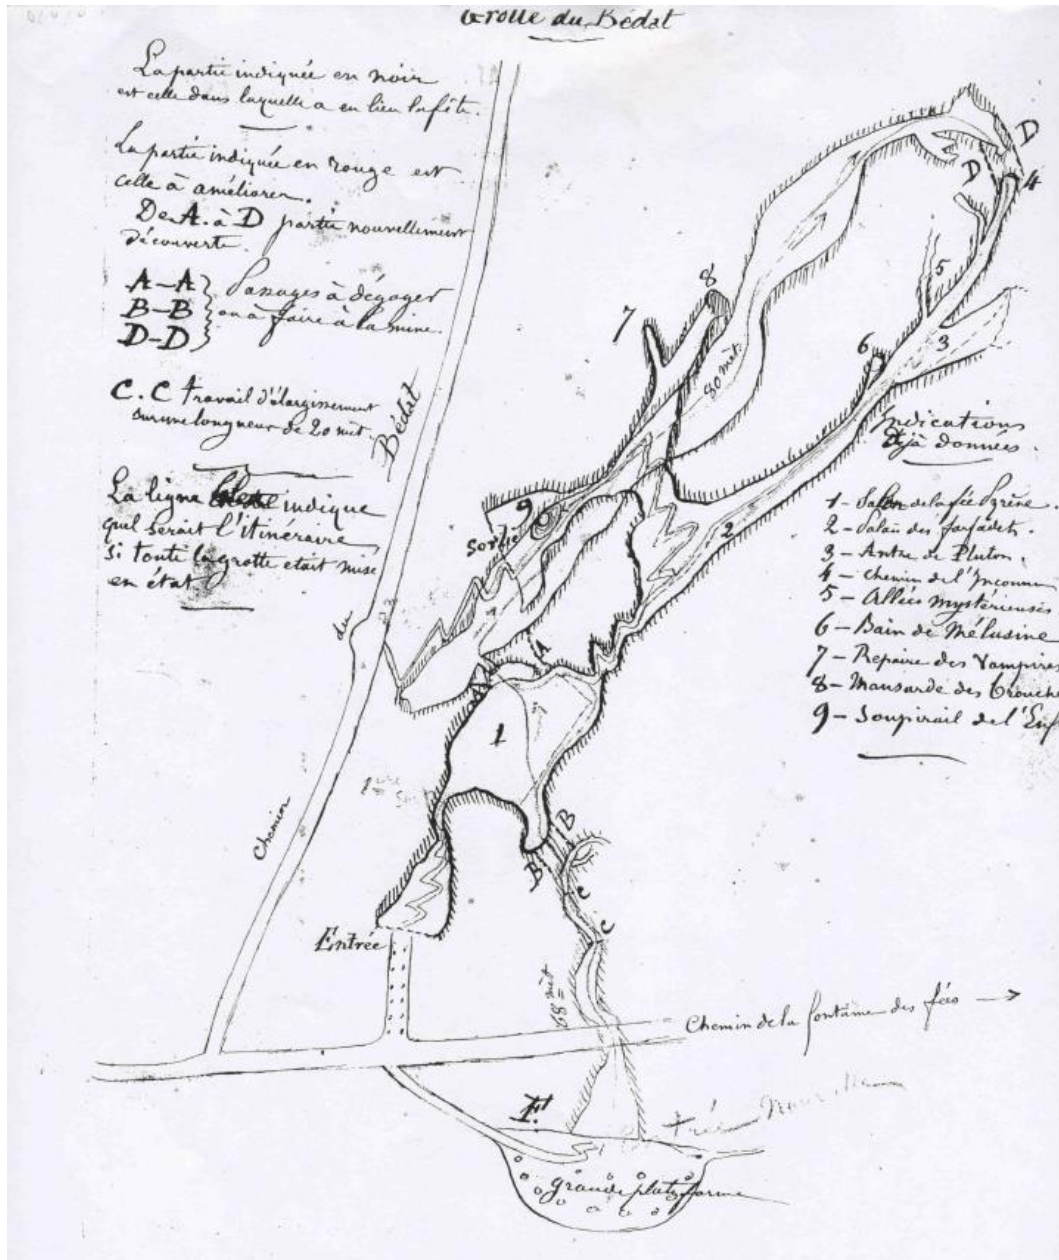 Grotte du Bédat
La partie indiquée en noir
est celle dans laquelle a eu lieu la fête.
La partie indiquée en rouge est
celle à améliorer.
De A. à D partie nouvellement
découverte.
A–A
B–B
D–D
Passages à dégager
ou à faire à la mine.
C. C travail d'élargissement
sur une longueur de 20 mèt.
La ligne indique
quel serait l'itinéraire
si toute la grotte était mise
en état
Chemin
du
Bédat
D
D
4
5
3
6
8
7
80 mèt.
2
9
Sortie
A
A
1
B
B
C
C
Entrée
68 mèt
Indications
déjà données.
1 – Salon de la fée Pyrène.
2 – Palais des farfadets.
3 – Antre de Pluton.
4 – Chemin de l'Inconnu
5 – Allées mystérieuses
6 – Bain de Mélusine
7 – Repaire des Vampires
8 – Mansarde des
9 – Soupirail de l'Enf
Chemin de la fontaine des fées
F.
grande plate forme